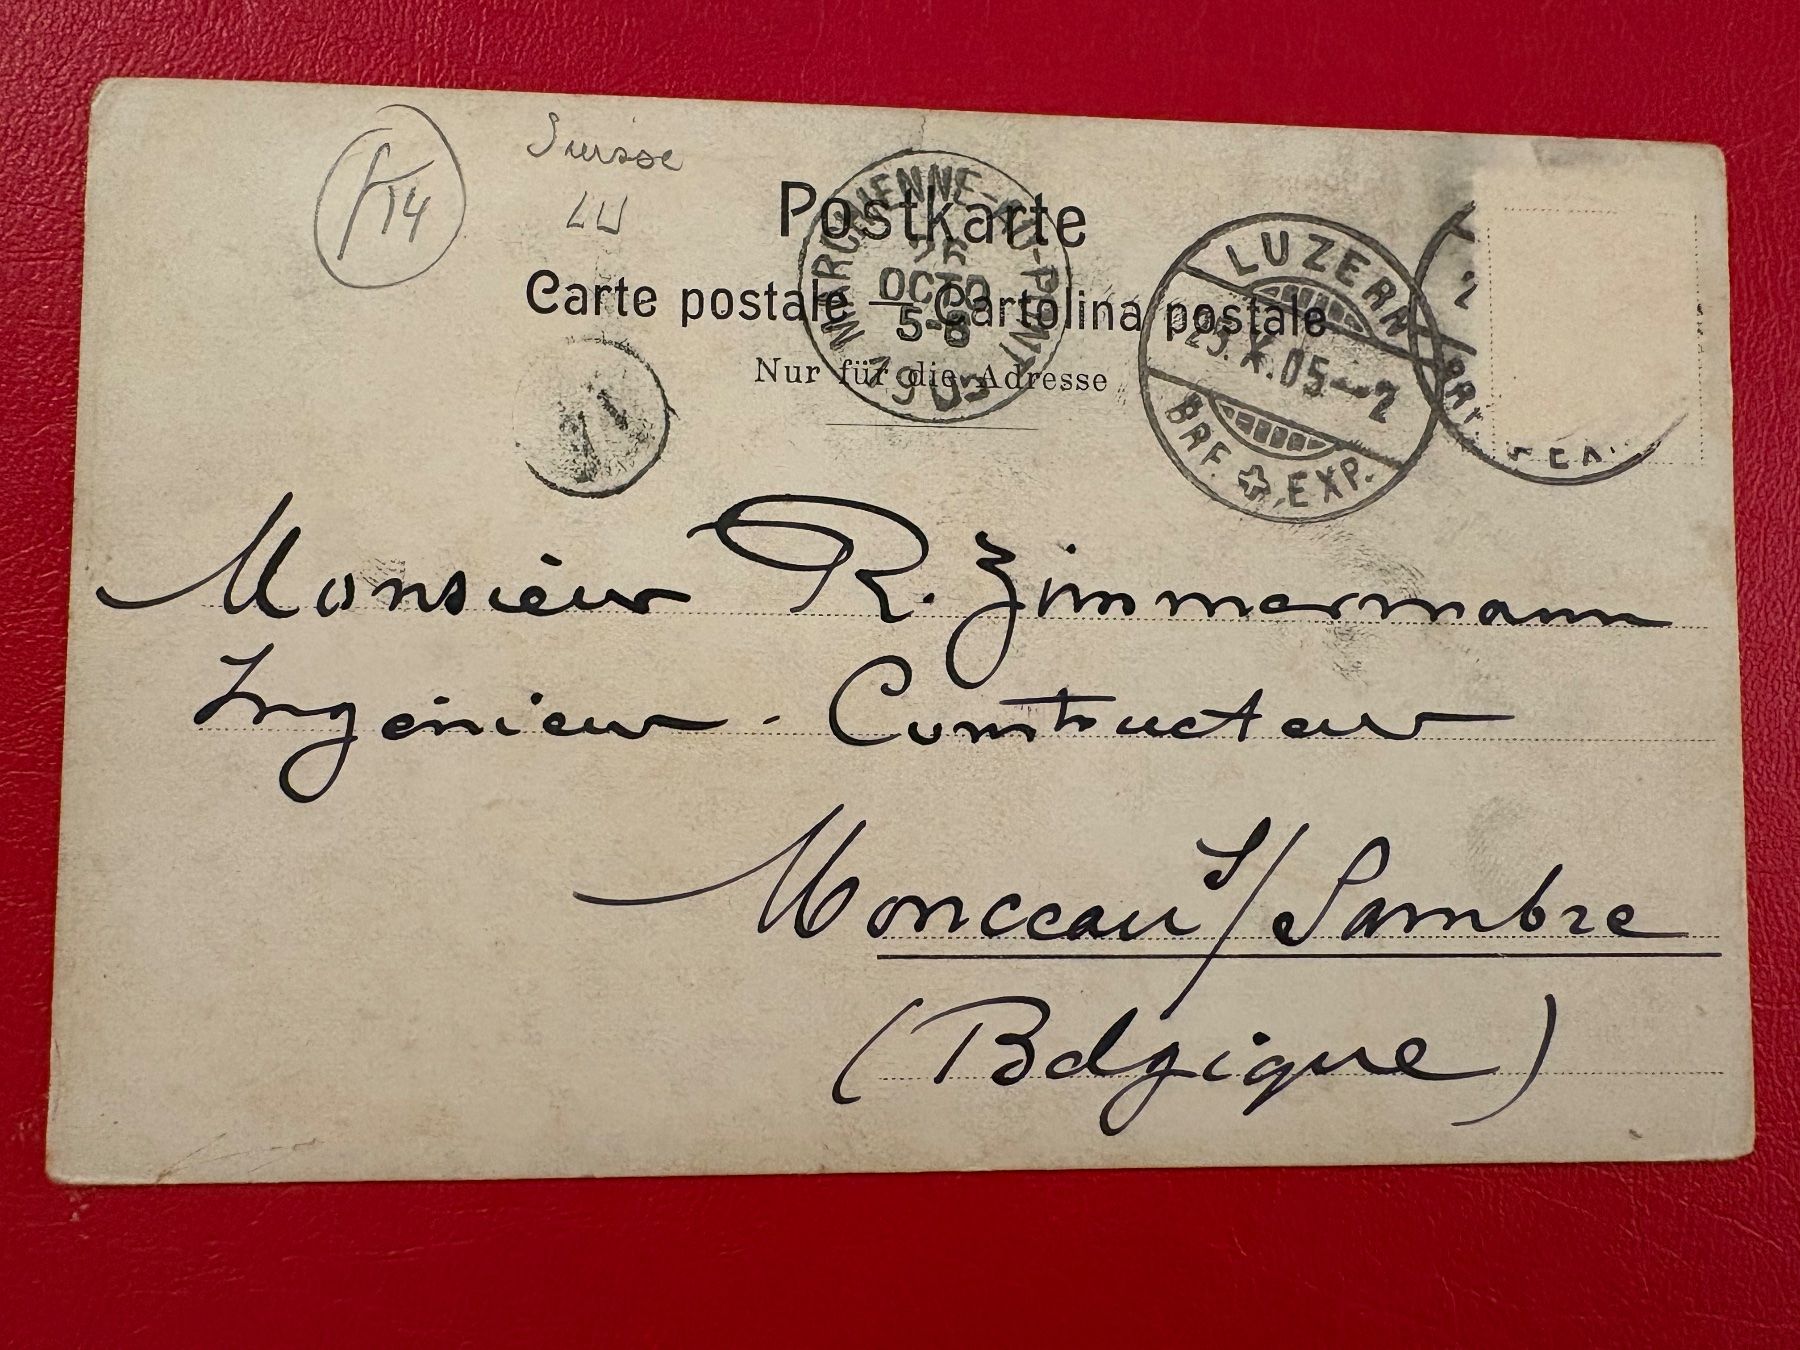 Suisse
LU
Postkarte
Carte postale — Cartolina postale
Nur für die Adresse
MARCHIENNE-AU-PONT
OCTO
5-6
1905
LUZERN
23.X.05-2
BRF. EXP.
VI
Monsieur R. Zimmermann
Ingénieur - Constructeur
Monceau S/Sambre
(Belgique)